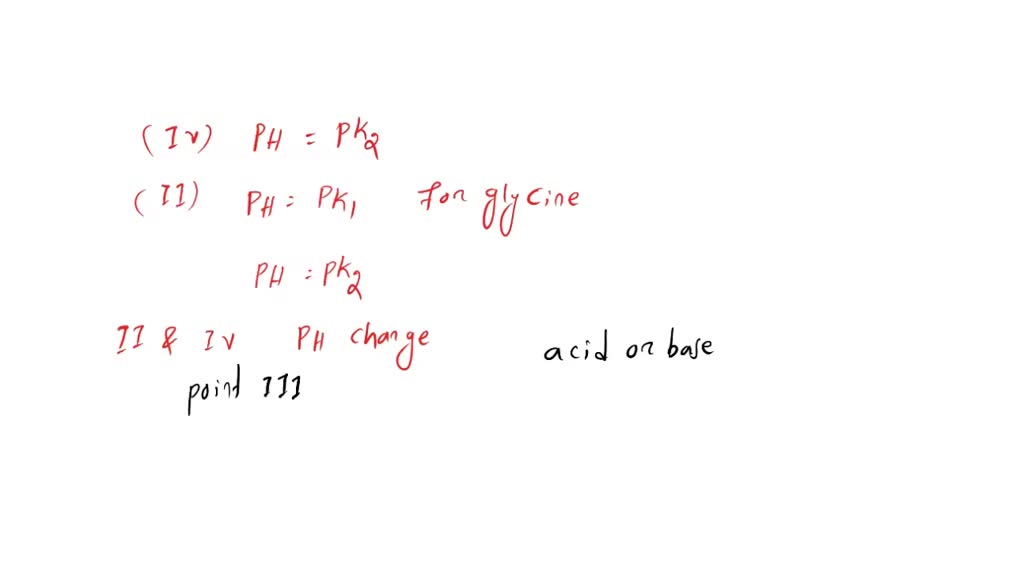 (Iv) PH = PK2
(II) PH = PK1 for glycine
PH = PK2
II & Iv PH change
acid or base
point III